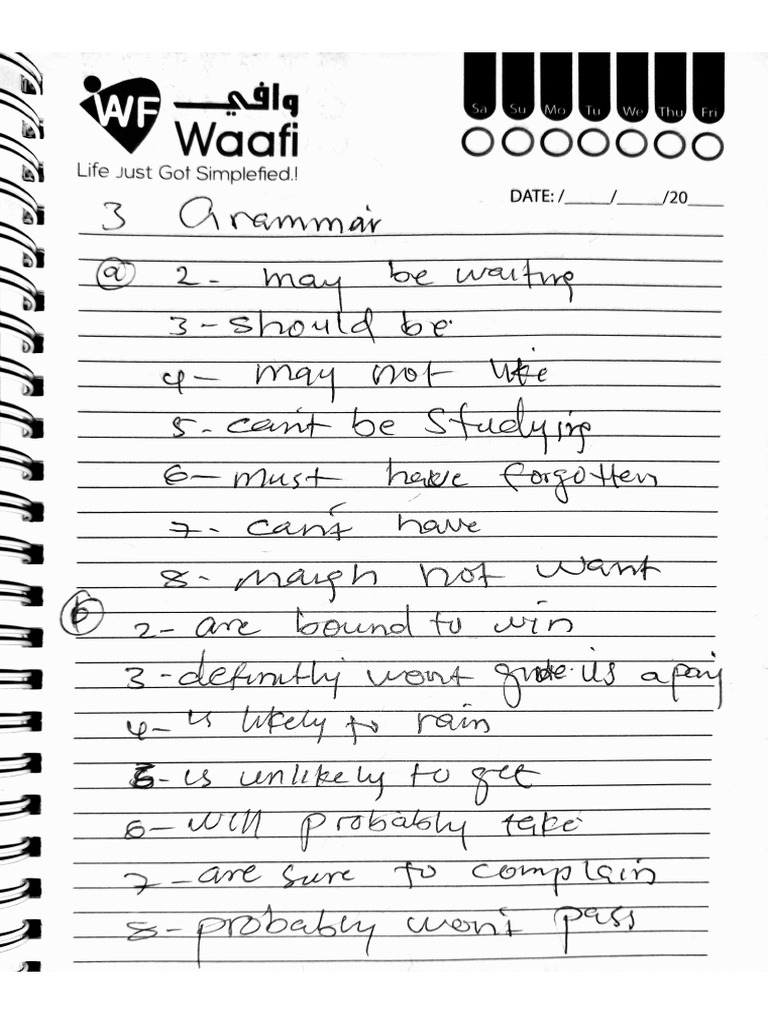 WF وافي
Waafi
Life Just Got Simplefied.!
Sa Su Mo Tu We Thu Fri
DATE: /____/____/20____
3 Grammar
a 2- may be waiting
3- should be
4- may not like
5- can't be studying
6- must have forgotten
7- can't have
8- not want
b 2- are bound to win
3- definitly wont us a pay
4- is likely to rain
5- is unlikely to get
6- will probably take
7- are sure to complain
8- probably won't pass